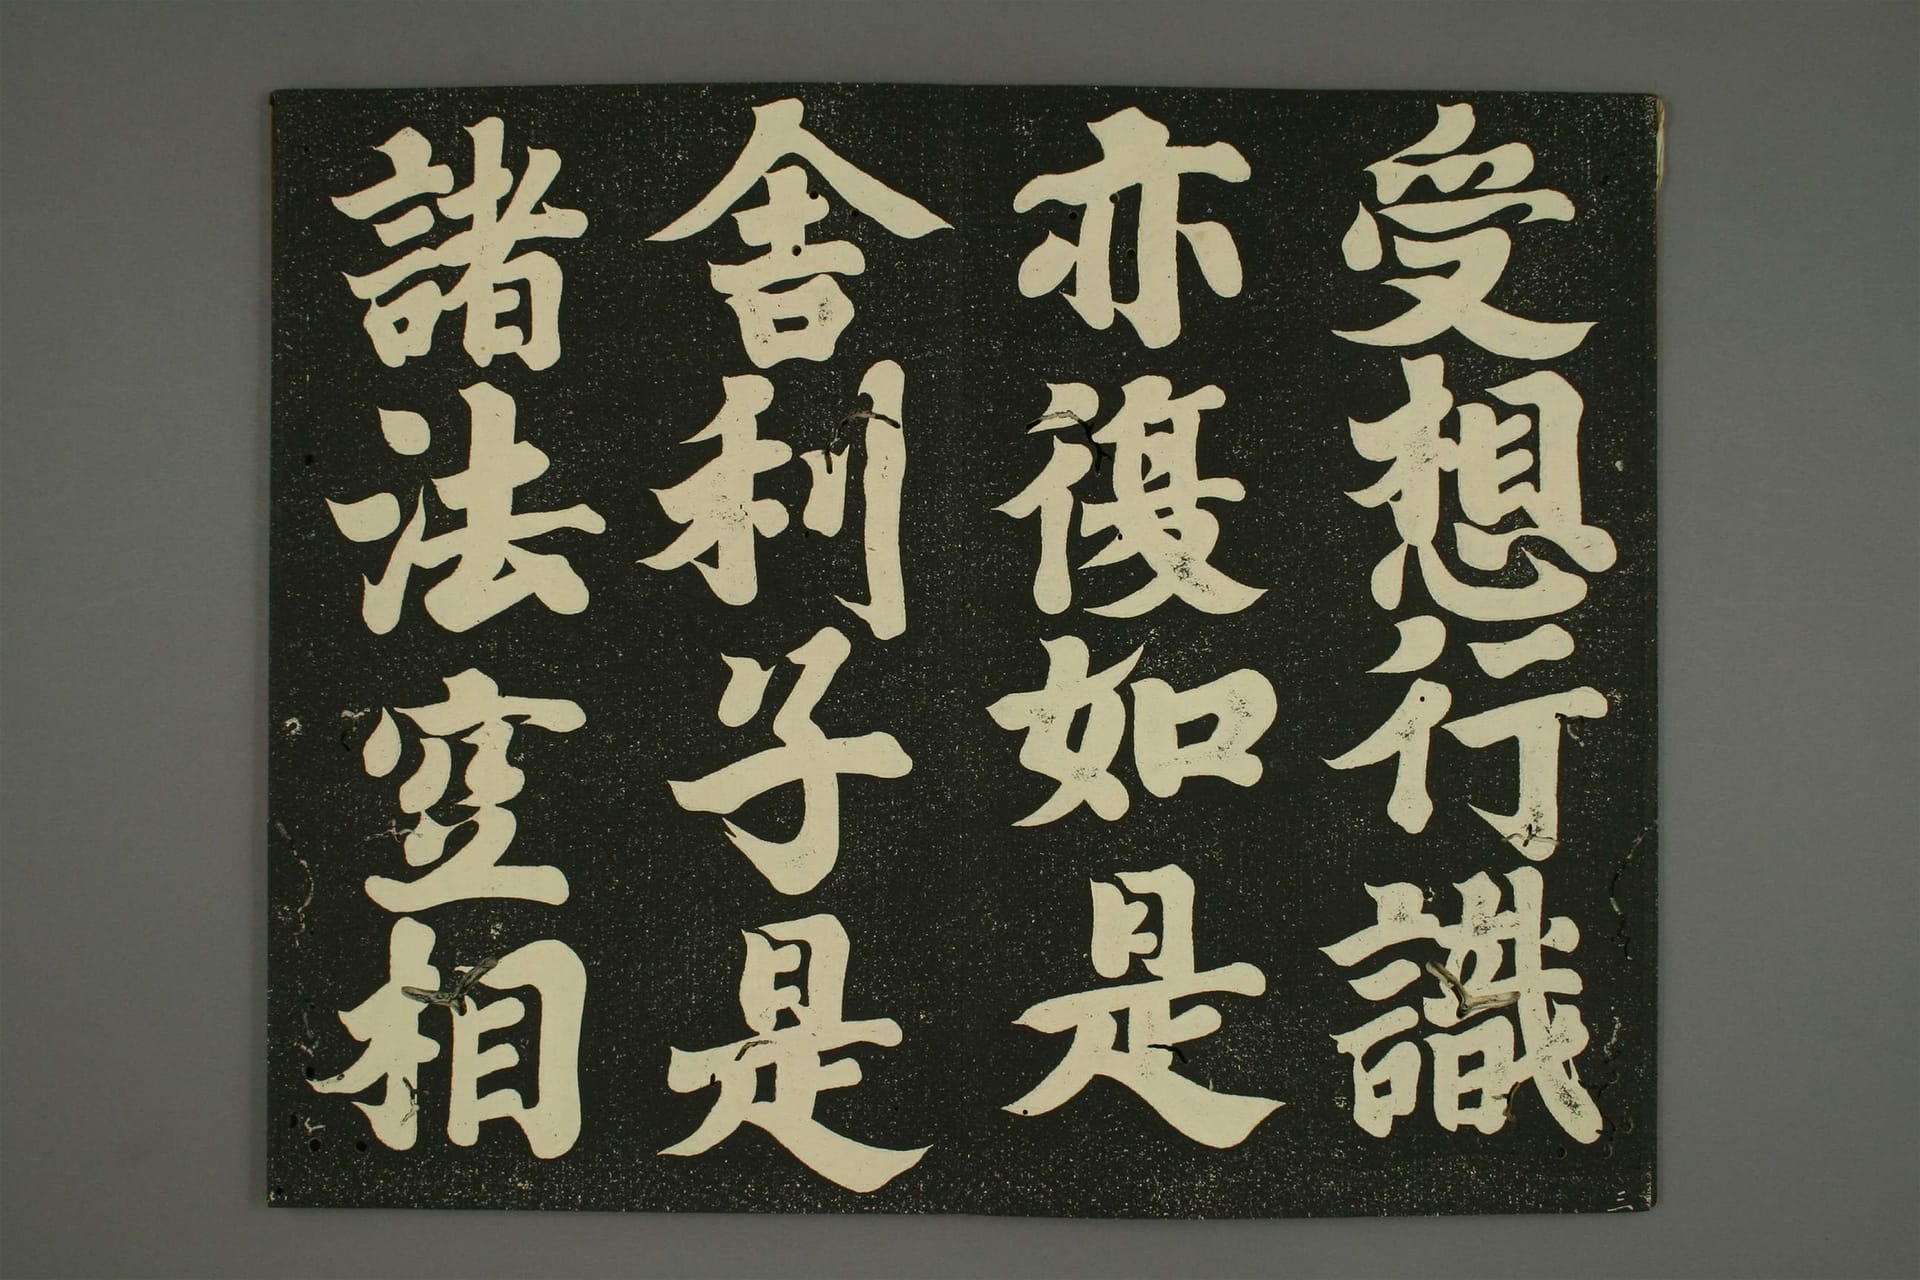 受想行識
亦復如是
舎利子是
諸法空相
三